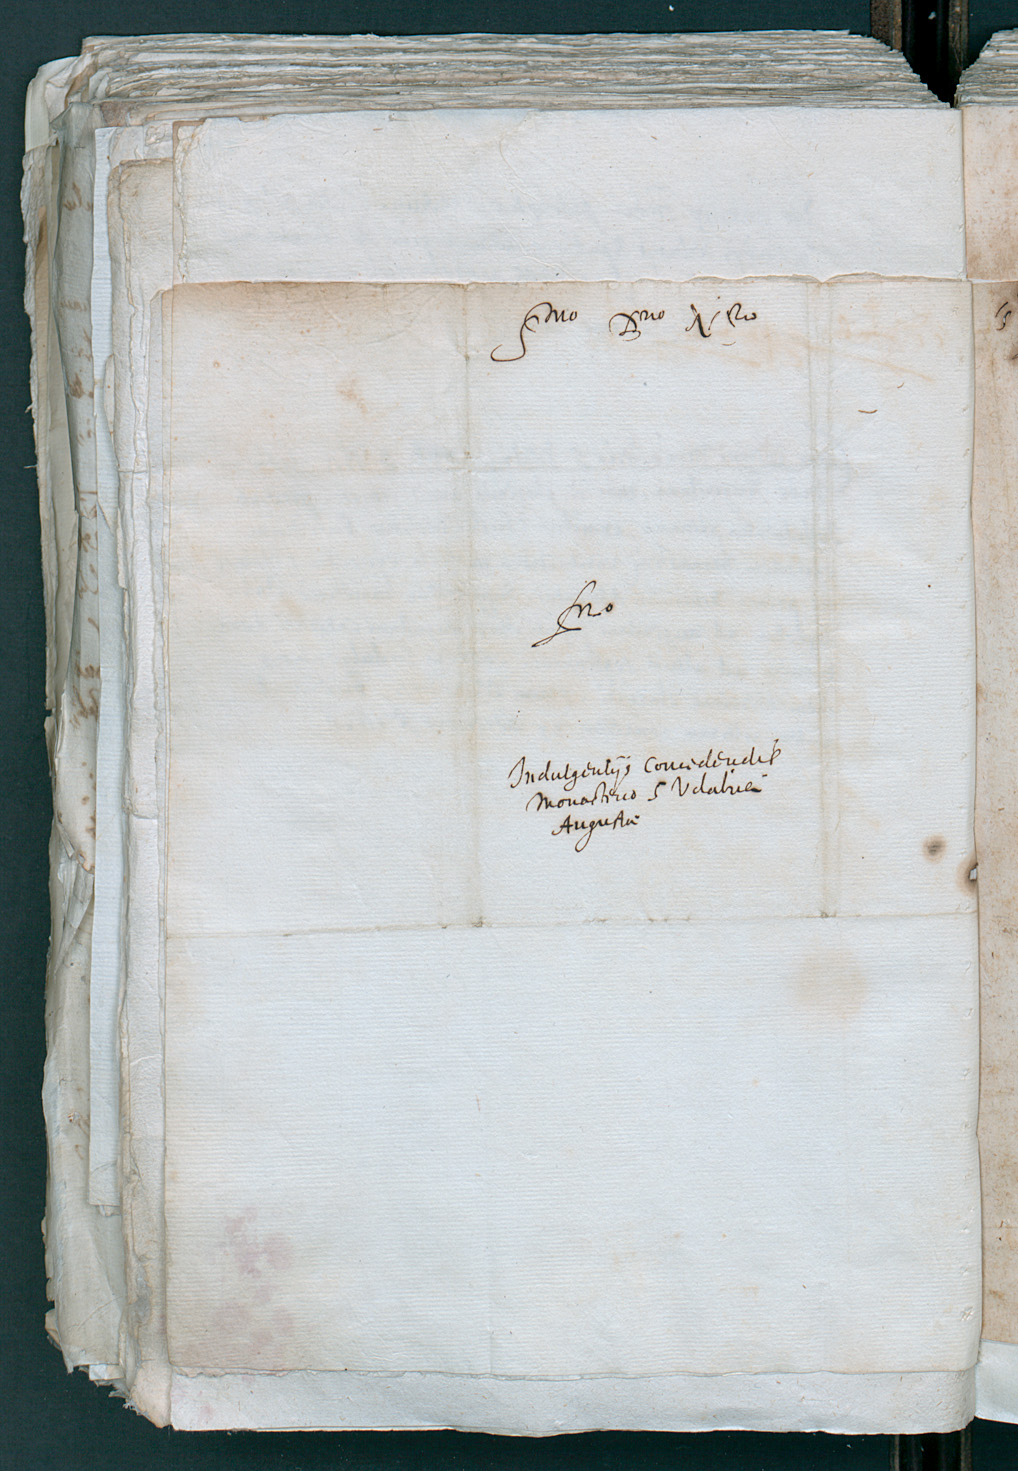 S.mo D.no N.ro
Pro
Indulgentijs concedendis
Monasterio S Vdalrici
Augustae